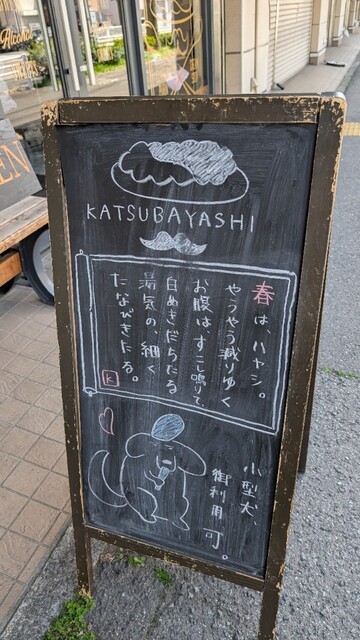 Alcohol
EN
KATSUBAYASHI
春は、ハヤシ。
やうやう減りゆく
お腹は、すこし鳴りて、
白めきだちたる
湯気の、細く
たなびきたる。
K
小型犬、
御利用可。